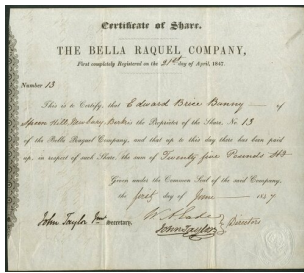 Certificate of Share.
THE BELLA RAQUEL COMPANY,
First completely Registered on the 21st day of April, 1847.
Number 13
This is to Certify, that Edward Brice Bunny of
Speen Hill, Newbury, Berks is the Proprietor of the Share, No. 13
of the Bella Raquel Company, and that up to this day there has been paid
up, in respect of such Share, the sum of Twenty five Pounds
Given under the Common Seal of the said Company,
the first day of June 1847
John Taylor Secretary.
John Taylor
Directors